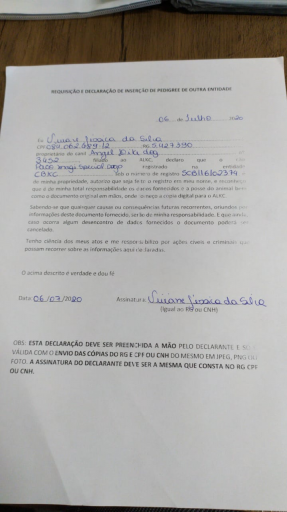 REQUISIÇÃO E DECLARAÇÃO DE INSERÇÃO DE PEDIGREE DE OUTRA ENTIDADE
06 de Julho 2020
Eu Viviane Jinaca da Silva
proprietário do cão
filiado ao ALKC, declaro que o
registrado na entidade
CBKC sob o número de registro
de minha propriedade, autorizo que seja feito o registro em meu nome, e
que é de minha total responsabilidade os dados fornecidos e a posse do
como o documento original em mãos, onde cópia digital para o ALKC.
Sabendo-se que quaisquer causas ou consequências futuras recorrentes, oriundas
informações deste documento fornecido, serão de minha responsabilidade. E que ainda,
caso ocorra algum desencontro de dados fornecidos o documento poderá ser
cancelado.
Tenho ciência dos meus atos e me responsabilizo por ações cíveis e criminais que
possam recorrer sobre as informações aqui declaradas.
O acima descrito é verdade e dou fé
Data: 06/07/2020 Assinatura: Viviane Jinaca da Silva
(igual ao RG ou CNH)
OBS: ESTA DECLARAÇÃO DEVE SER PREENCHIDA A MÃO PELO DECLARANTE E SÓ
VÁLIDA COM O ENVIO DAS CÓPIAS DO RG E CPF OU CNH DO MESMO EM JPEG, PNG OU
FOTO. A ASSINATURA DO DECLARANTE DEVE SER A MESMA QUE CONSTA NO RG CPF
OU CNH.